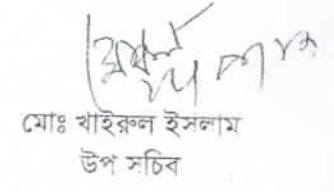 মোঃ খাইরুল ইসলাম
উপ সচিব